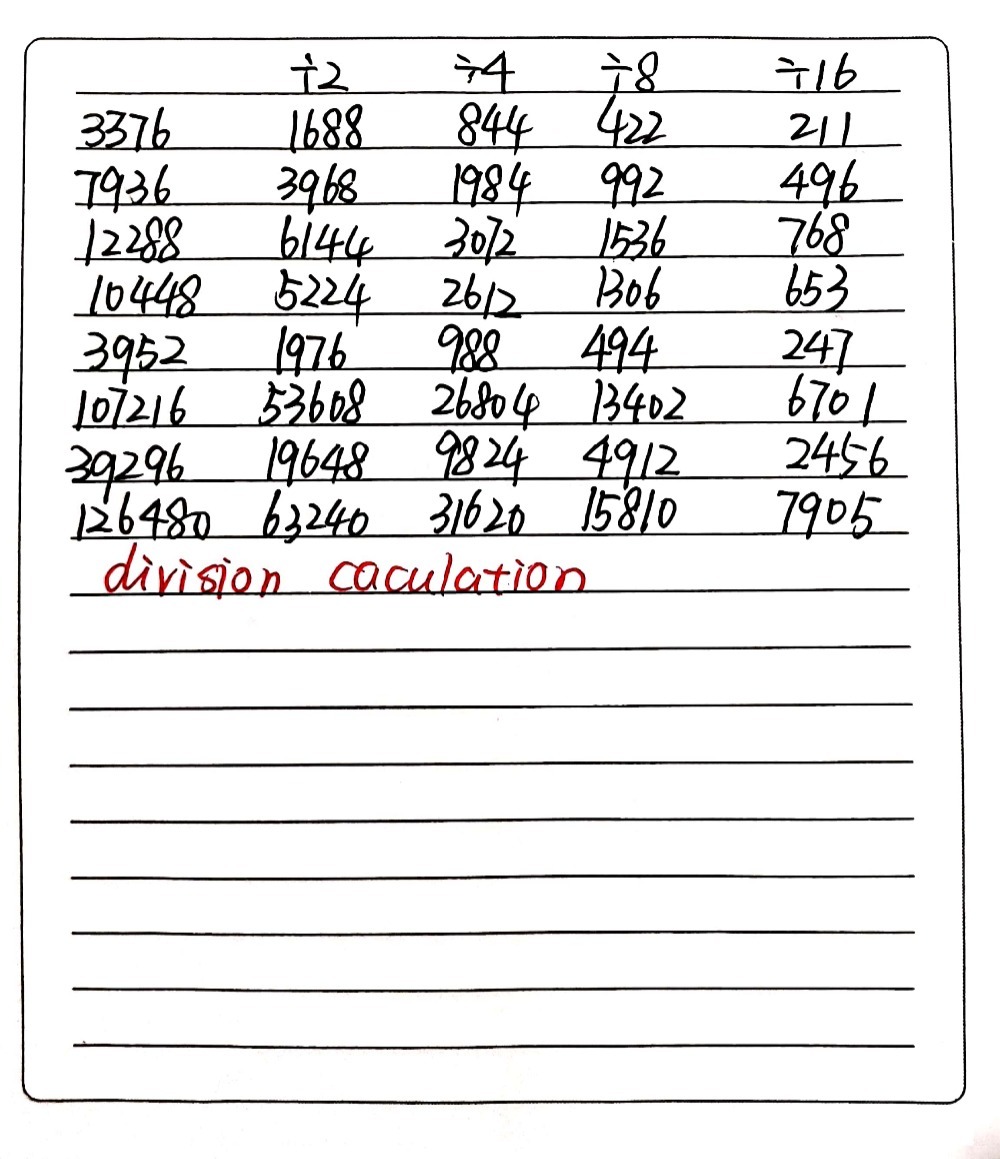 ÷2 ÷4 ÷8 ÷16
3376 1688 844 422 211
7936 3968 1984 992 496
12288 6144 3072 1536 768
10448 5224 2612 1306 653
3952 1976 988 494 247
107216 53608 26804 13402 6701
39296 19648 9824 4912 2456
126480 63240 31620 15810 7905
division caculation